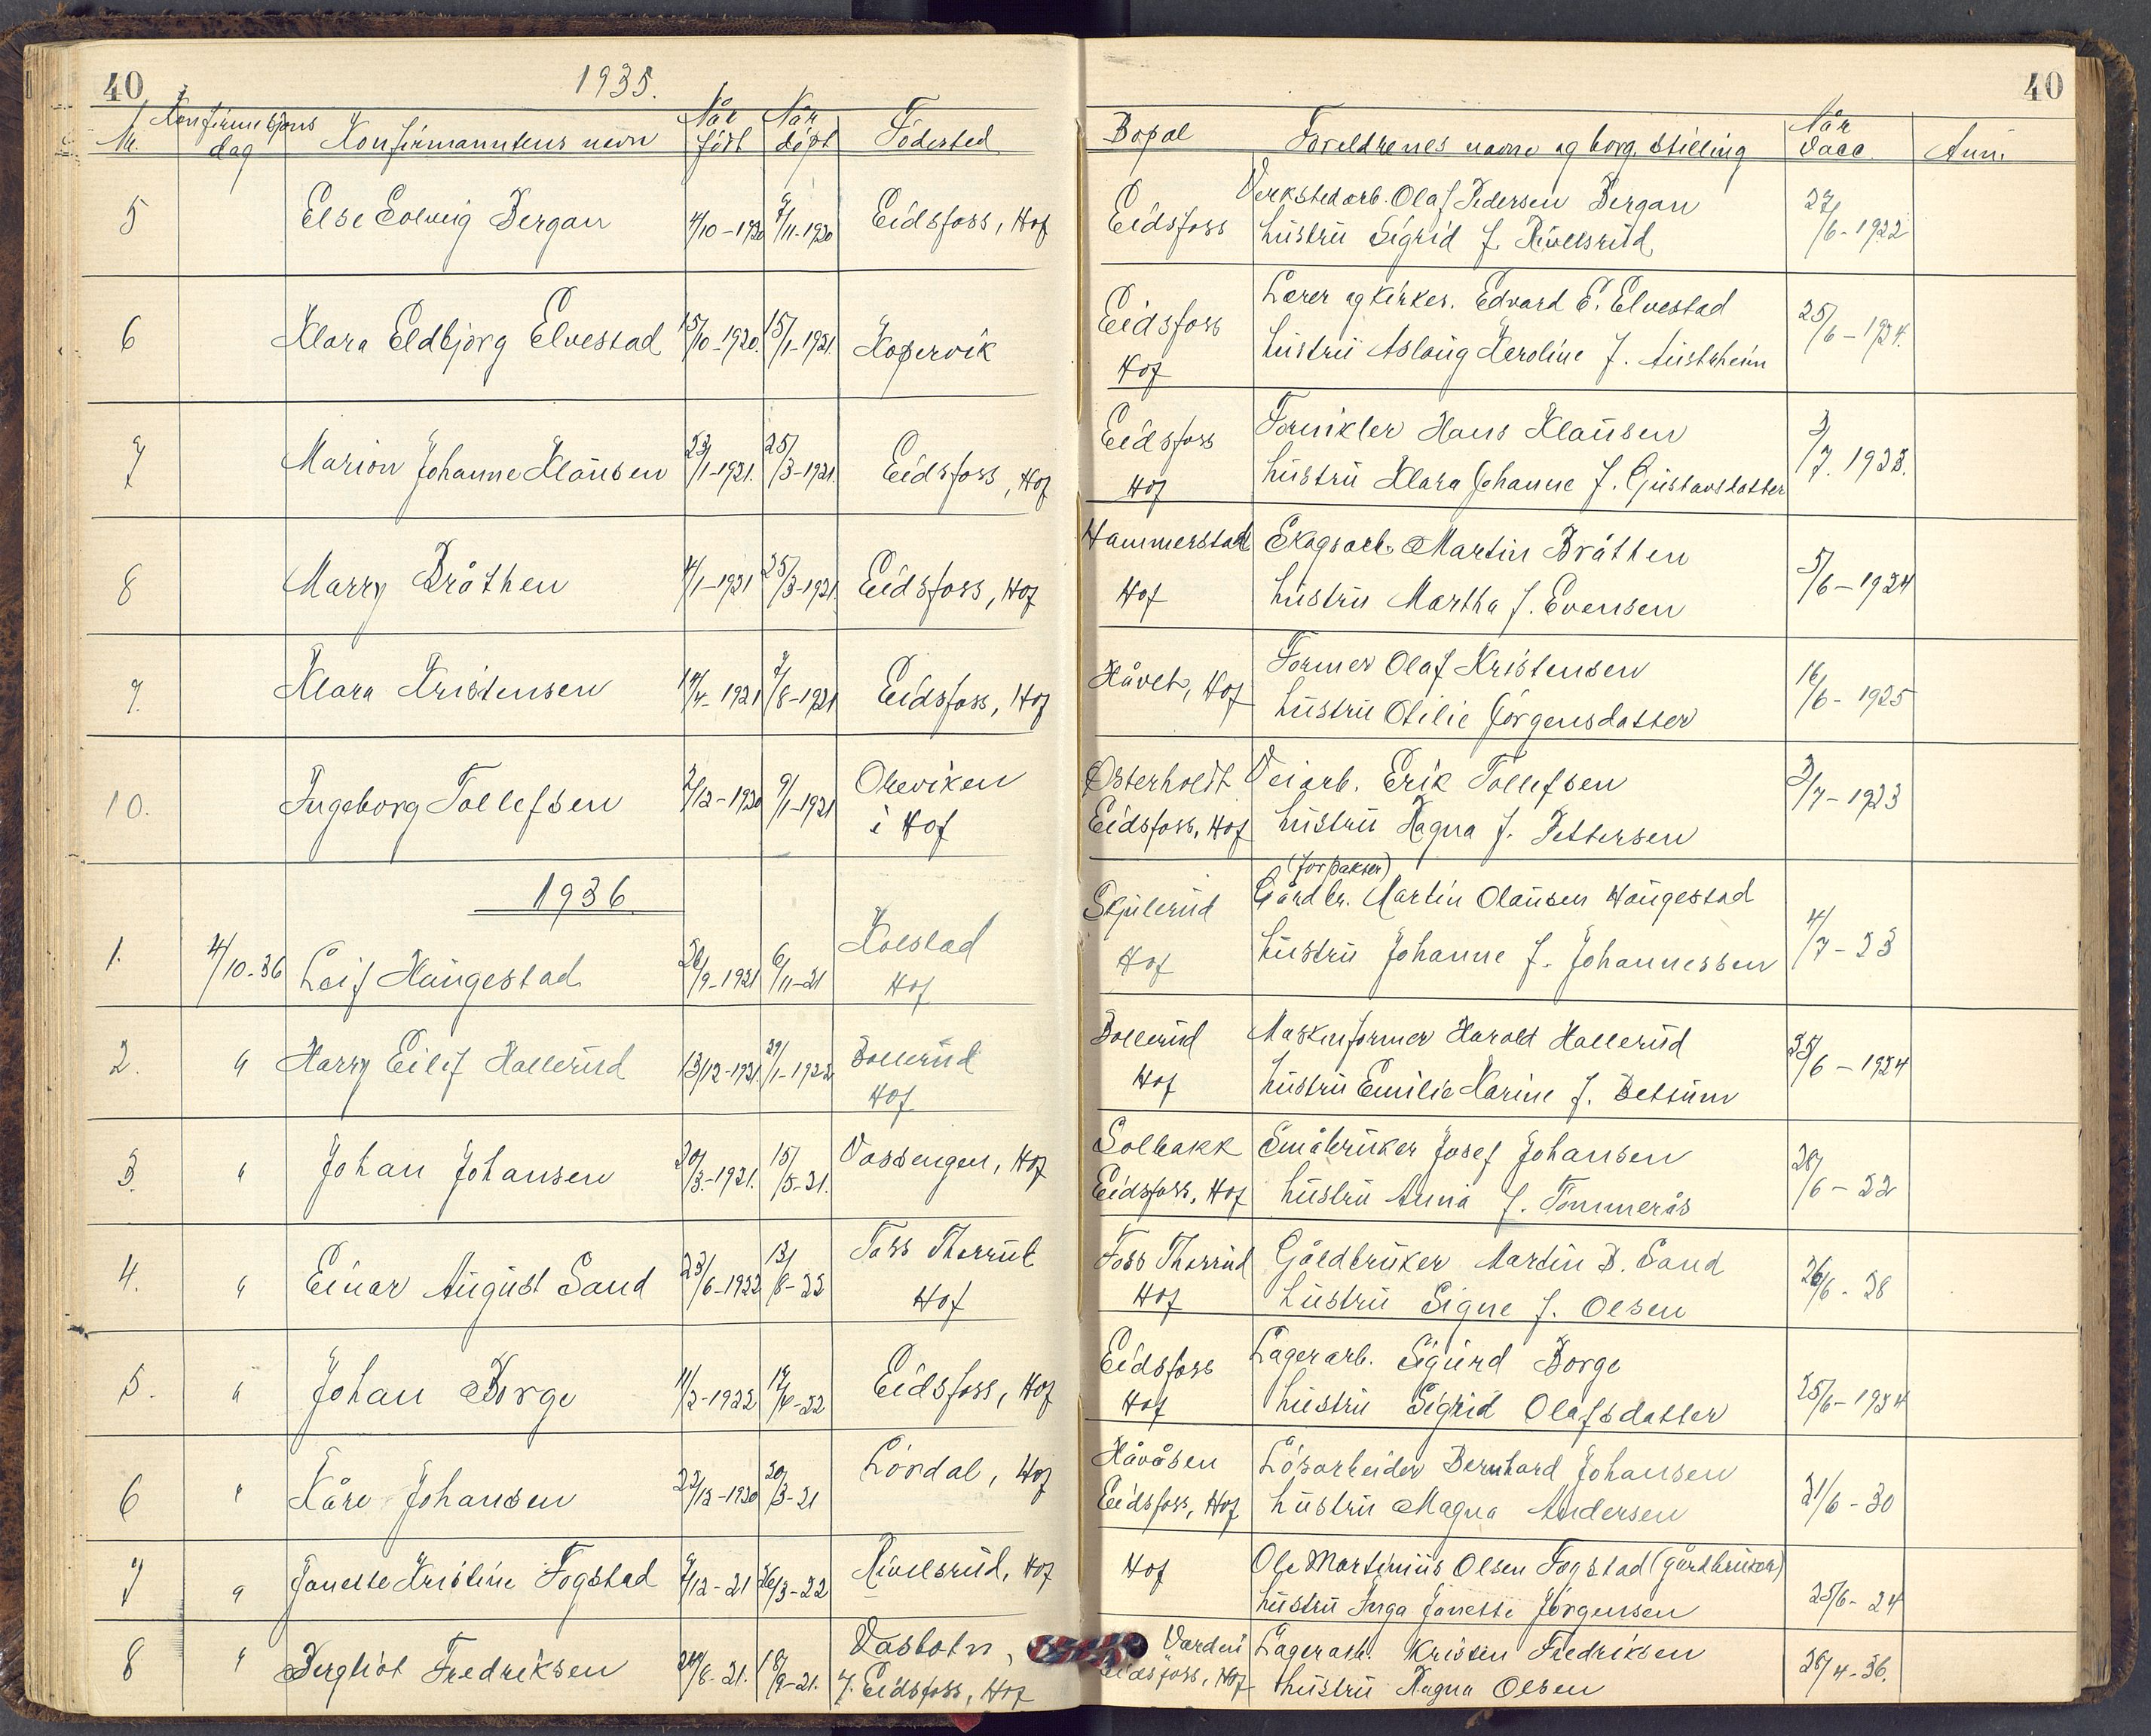 40
1935.
40
Nr. Konfirmasjons dag Konfirmantens navn Når født Når døpt Födested Bopæl Foreldrenes navne og borg. stilling Når vacc. Anm.
5 Else Solveig Bergan 4/10-1920 7/11-1920 Eidsfoss, Hof Eidsfoss Verkstedarb. Olaf Pedersen Bergan 27/6-1922
hustru Sigrid f. Rivelsrud
6 Klara Eldbjørg Elvestad 15/10-1920. 15/1-1921. Kopervik Eidsfoss Lærer og kirkes. Edvard E. Elvestad 25/6-1924.
Hof hustru Aslaug Karoline f. Austrheim
7 Marion Johanne Klausen 23/1-1921. 25/3-1921. Eidsfoss, Hof Eidsfoss Fornikler Hans Klausen 3/7. 1923.
Hof hustru Klara Johanne f. Gustavsdatter
8 Marry Bråthen 4/1-1921 25/3-1921 Eidsfoss, Hof Hammerstad Skogsarb. Martin Bråthen 5/6-1924
Hof hustru Martha f. Evensen
9. Klara Kristensen 14/4-1921 7/8-1921 Eidsfoss, Hof Håvet, Hof Former Olaf Kristensen 16/6-1925
hustru Otilie Jörgensdatter
10. Ingeborg Tollefsen 2/12-1920 9/1-1921 Oreviken Østerholdt Veiarb. Erik Tollefsen 3/7-1923
i Hof Eidsfoss, Hof hustru Ragna f. Pettersen
1936
(forpakter)
1. 4/10-36 Leif Haugestad 26/9-1921 6/11-21 Kolstad Skjulerud Gårdbr. Martin Olausen Haugestad 4/7-23
Hof Hof hustru Johanne f. Johannessen
2. " Harry Eilif Hallerud 13/12-1921. 29/1-1922 Bollerud Bollerud Maskinformer Harald Hallerud 25/6-1924
Hof Hof hustru Emilie Karine f. Betsum
3. " Johan Johansen 20/3.-1921. 15/5-21. Vassengen, Hof Solbakk Småbruker Josef Johansen 28/6-22
Eidsfoss, Hof hustru Anna f. Tommerås
4. " Einar August Sand 23/6-1922 13/8-22 Foss Thorrud Foss Thorrud Gårdbruker Martin B. Sand 26/6-28
Hof Hof hustru Signe f. Olsen
5. " Johan Borge 11/2-1922 17/4-22 Eidsfoss, Hof Eidsfoss Lagerarb. Sigurd Borge 25/6-1924
Hof hustru Sigrid Olafsdatter
6 " Kåre Johansen 22/12-1920 20/3-21 Lördal, Hof Håvåsen Lösarbeider Bernhard Johansen 21/6-30
Eidsfoss, Hof hustru Magna Andersen
7 " Janette Kristine Fogstad 7/12-21 26/3-22 Rivelsrud, Hof Hof Ole Martinius Olsen Fogstad (gårdbruker) 25/6-24
hustru Inga Janette Jörgensen
8 " Bergliot Fredriksen 24/8-21. 18/9-21. Vasbotn, Varden Lagerarb. Kristen Fredriksen 28/4-36.
Eidsfoss, Hof Eidsfoss, Hof hustru Ragna Olsen